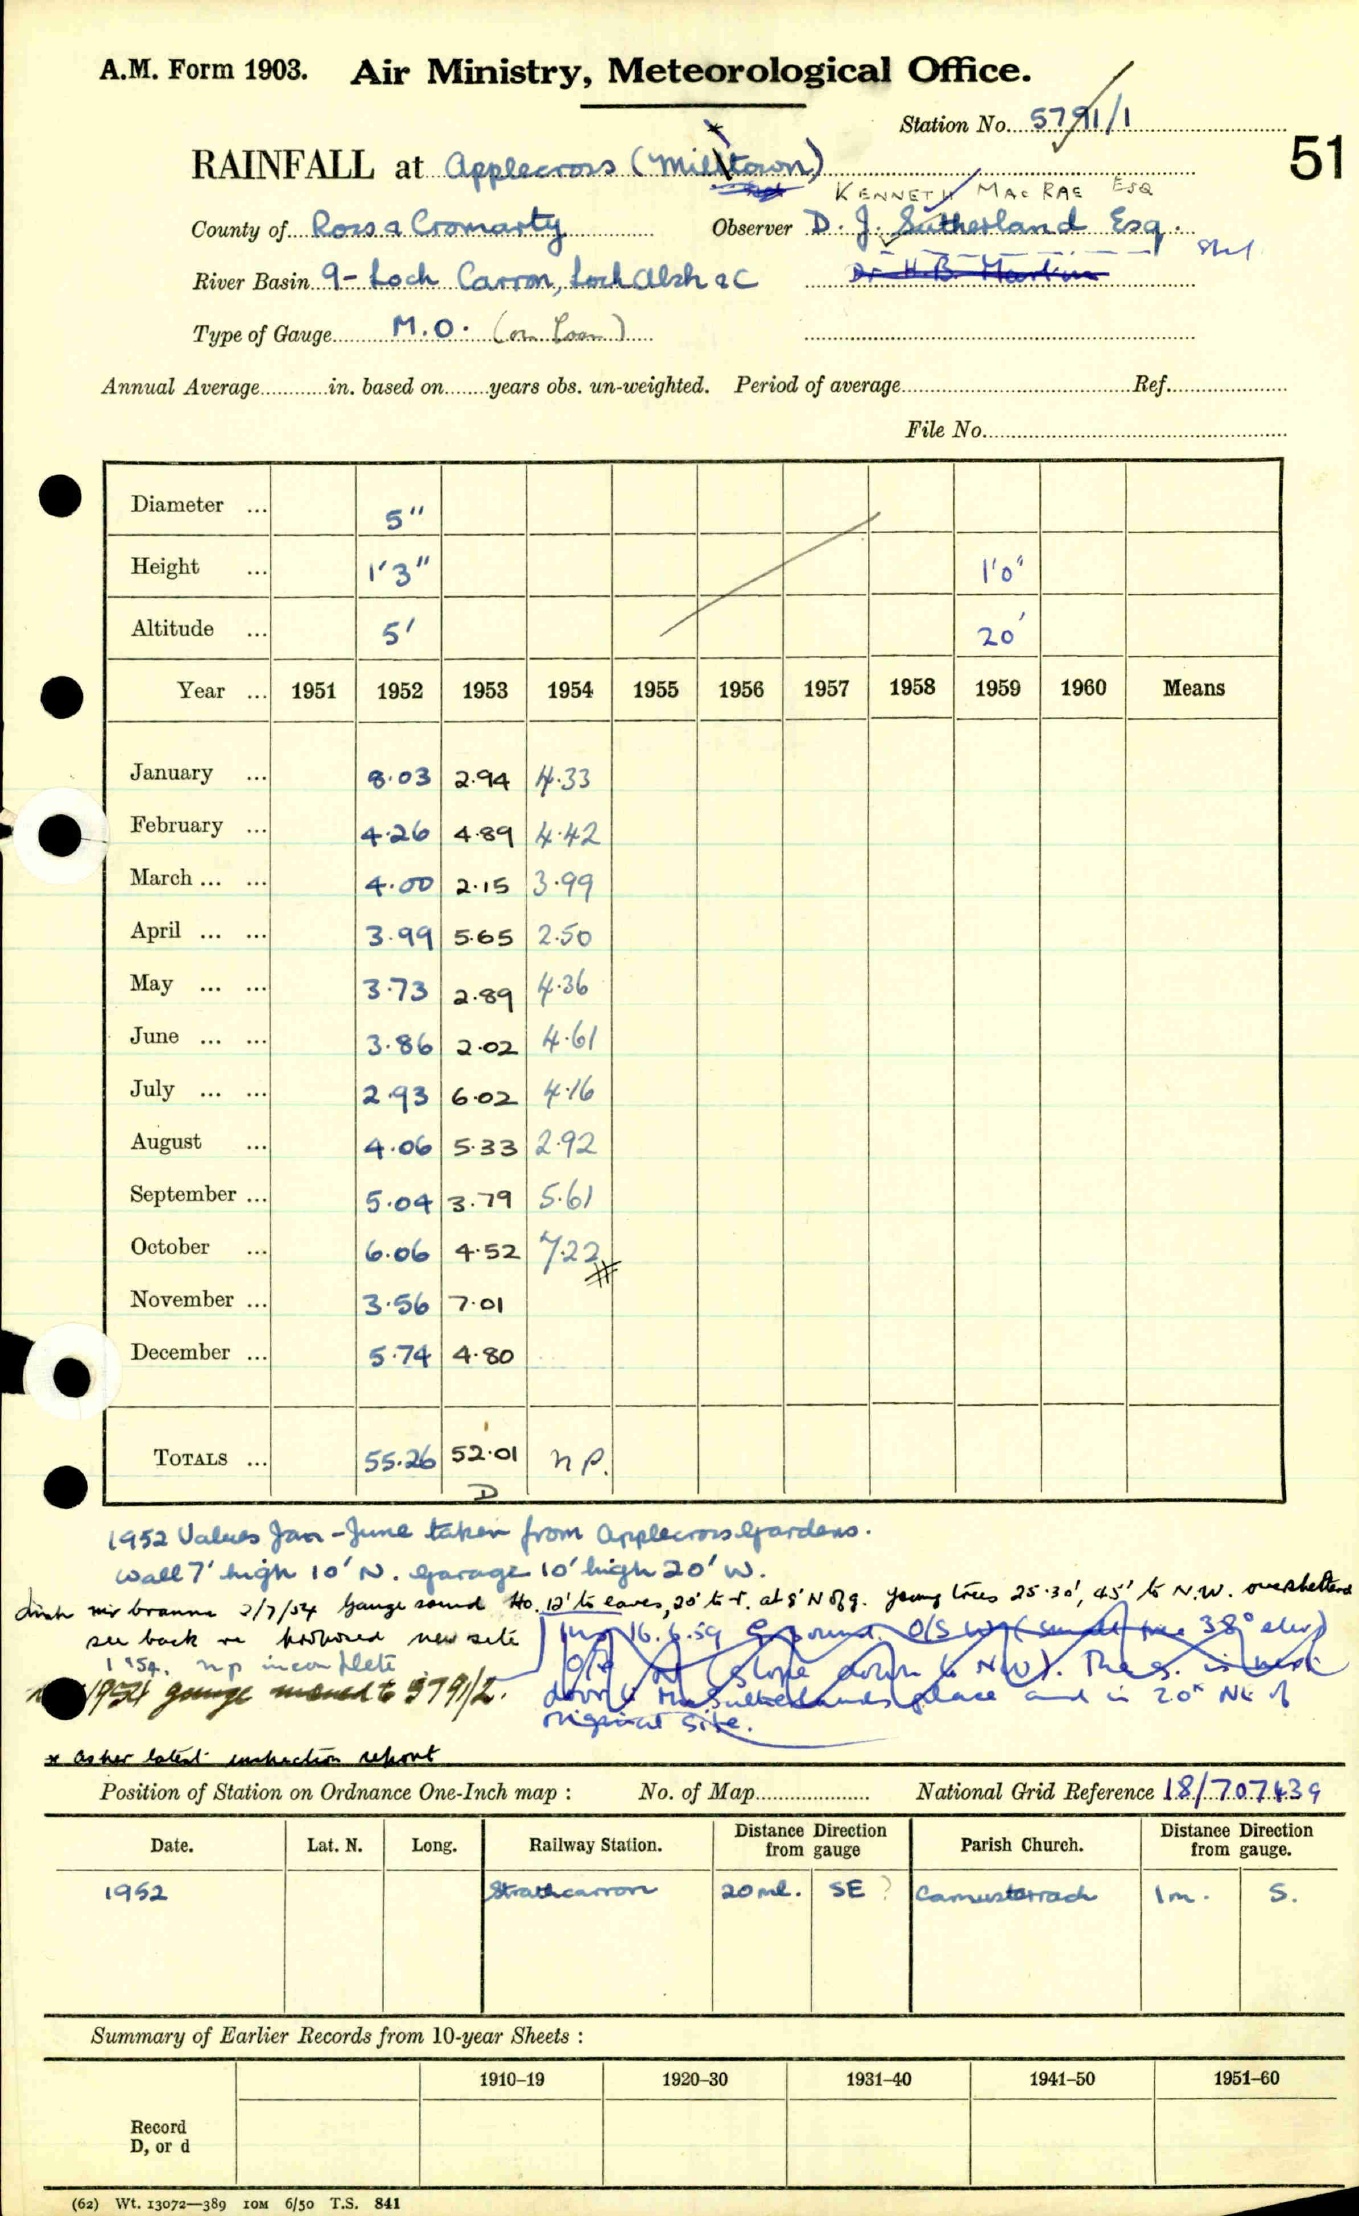 A.M. Form 1903. Air Ministry, Meteorological Office.
Station No. 5791/1
51
RAINFALL at Applecross (Milltown)
*
KENNETH MACRAE ESQ
County of Ross & Cromarty Observer D. J. Sutherland Esq.
River Basin 9- Loch Carron, Loch Alsh &C Dr. H. B. Martin
Type of Gauge M.O. (on Loan)
Annual Average in. based on years obs. un-weighted. Period of average Ref.
File No.
Diameter ... 5"
Height ... 1'3" 1'0"
Altitude ... 5' 20'
Year ... 1951 1952 1953 1954 1955 1956 1957 1958 1959 1960 Means
January ... 8.03 2.94 4.33
February ... 4.26 4.89 4.42
March ... ... 4.00 2.15 3.99
April ... ... 3.99 5.65 2.50
May ... ... 3.73 2.89 4.36
June ... ... 3.86 2.02 4.61
July ... ... 2.93 6.02 4.16
August ... 4.06 5.33 2.92
September ... 5.04 3.79 5.61
October ... 6.06 4.52 7.22 #
November ... 3.56 7.01
December ... 5.74 4.80
TOTALS ... 55.26 52.01 n p.
D
1952 Values Jan-June taken from Applecross Gardens.
Wall 7' high 10' N. Garage 10' high 20' W.
2/7/54 Gauge sound Ho. 12' to eaves, 20' to r. at 8' N of g. young trees 25-30', 45' to N.W. oversheltered
see back re new site
16.6.59 sound. O/S W (small tree 38° elev)
1954. np incomplete
(slope down to NW). The g. is next
1954 gauge moved to 5791/2.
door to the Sutherlands place and is 20x NE of
original site.
* as per latest inspection report
Position of Station on Ordnance One-Inch map : No. of Map National Grid Reference 18/707439
Date. Lat. N. Long. Railway Station. Distance Direction from gauge Parish Church. Distance Direction from gauge.
1952 Strathcarron 20ml. SE ? Camusterrach 1m. S.
Summary of Earlier Records from 10-year Sheets :
1910–19 1920–30 1931–40 1941–50 1951–60
Record
D, or d
(62) Wt. 13072—389 10M 6/50 T.S. 841